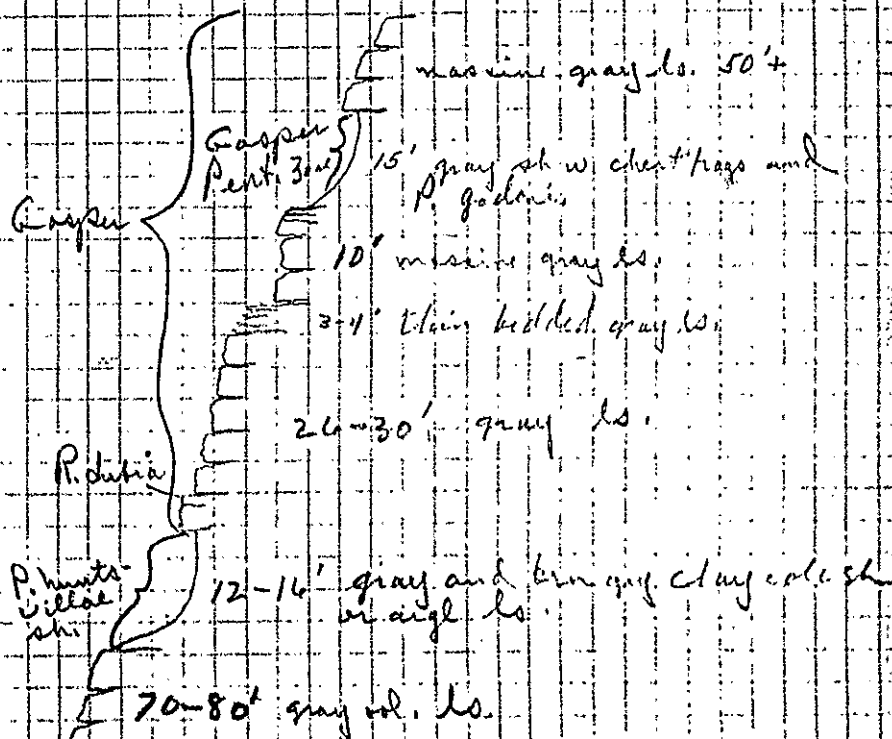 massive gray ls. 50'+
Gasper
Pent. Zone
15' gray sh w chert frags and
P. godoni.
Gasper
10' massive gray ls.
3-4' thin bedded gray ls.
gray ls.
R. dubia
P. hunts-
villae
sh.
gray and brn gry clay sh
or argl ls.
70-80' gray ool. ls.